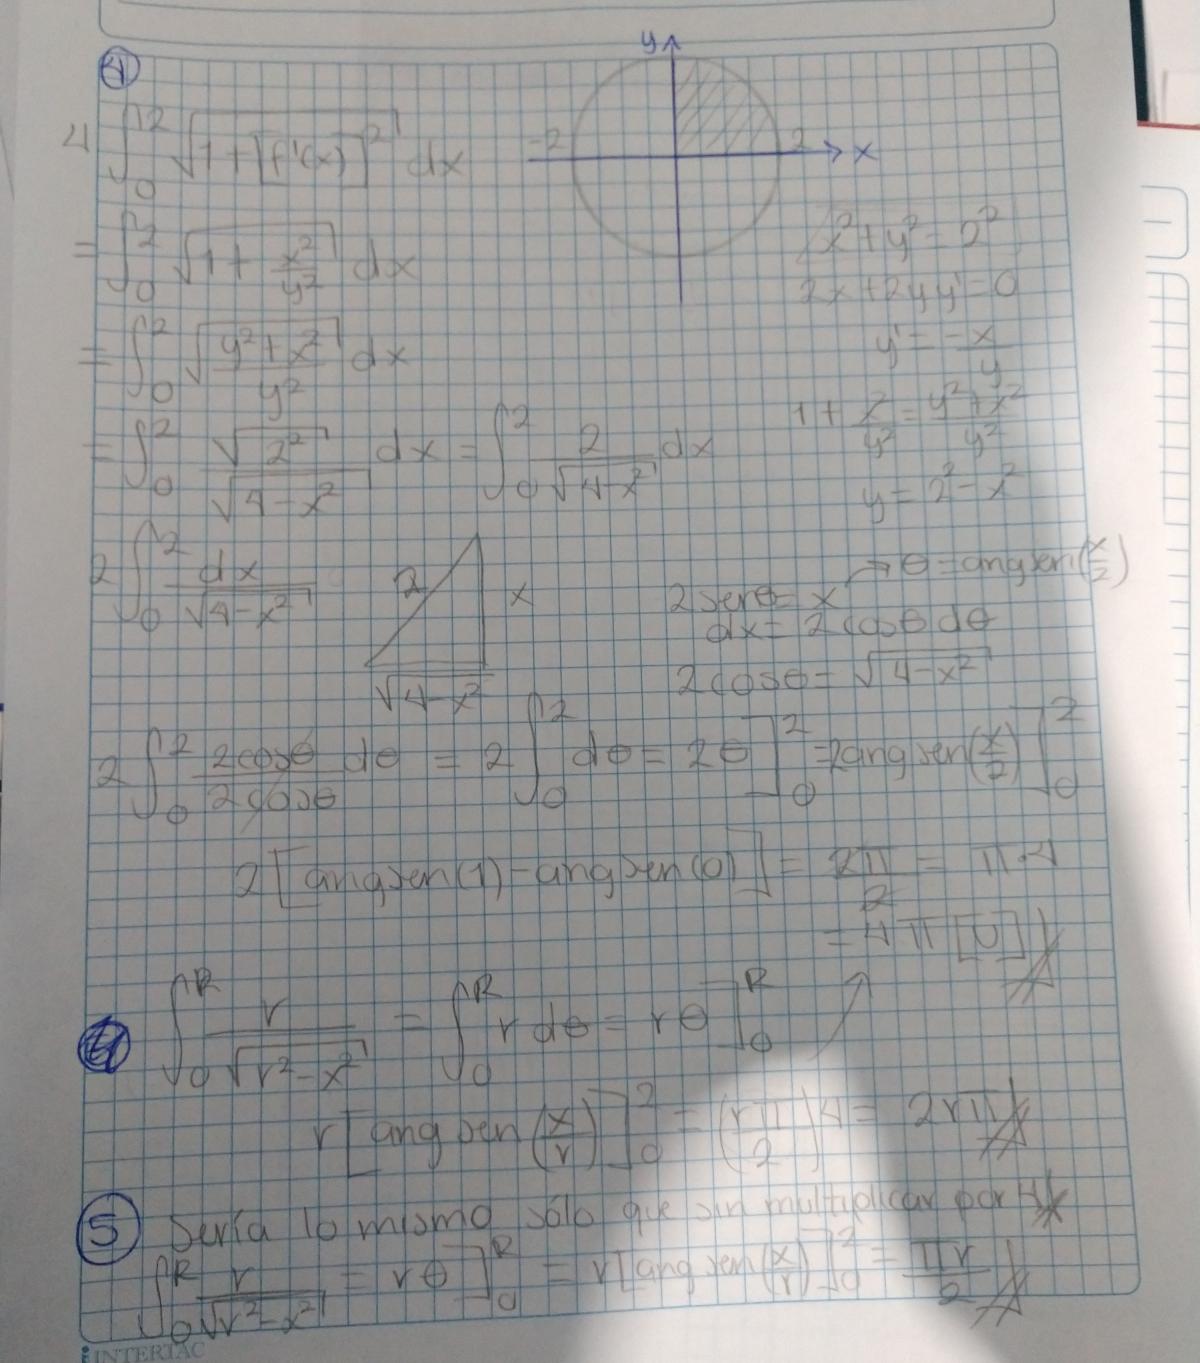 ④
y
4 ∫₀² √(1+[f'(x)]²) dx
-2 2 x
= ∫₀² √(1 + x²/y²) dx
x²+y²=2²
2x+2yy'=0
= ∫₀² √((y²+x²)/y²) dx
y'= -x/y
1 + x²/y² = (y²+x²)/y²
= ∫₀² √(2²)/√(4-x²) dx = ∫₀² 2/√(4-x²) dx
y = 2²-x²
2 ∫₀² dx/√(4-x²)
2 x √(4-x²)
2senθ= x → θ=angsen(x/2)
dx= 2cosθdθ
2cosθ= √(4-x²)
2 ∫₀² 2cosθ/2cosθ dθ = 2 ∫₀² dθ = 2θ]₀² =2angsen(x/2)]₀²
2[angsen(1)-angsen(0)] = 2π/2 = π·4
= 4π [U]
∫₀ᴿ r/√(r²-x²) = ∫₀ᴿ r dθ = rθ]₀ᴿ
r[angsen(x/r)]₀² = (rπ/2)4 = 2rπ
⑤ Sería lo mismo sólo que sin multiplicar por 4
∫₀ᴿ r/√(r²-x²) = rθ]₀ᴿ = r[angsen(x/r)]₀² = πr/2
INTERTAC